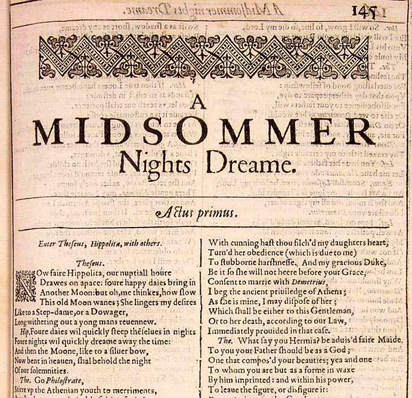 145
A
MIDSOMMER
Nights Dreame.
Actus primus.
Enter Theseus, Hippolita, with others.
Theseus.
NOw faire Hippolita, our nuptiall houre
Drawes on apace: foure happy daies bring in
Another Moon: but oh, me thinkes, how slow
This old Moon wanes; She lingers my desires
Like to a Step-dame, or a Dowager,
Long withering out a yong mans reuennew.
Hip. Foure daies wil quickly steep thẽselues in nights
Foure nights wil quickly dreame away the time:
And then the Moone, like to a siluer bow,
Now bent in heauen, shal behold the night
Of our solemnities.
The. Go Philostrate,
Stirre vp the Athenian youth to merriments,
With cunning hast thou filch'd my daughters heart,
Turn'd her obedience (which is due to me)
To stubborne harshnesse, And my gracious Duke,
Be it so she will not heere before your Grace,
Consent to marrie with Demetrius,
I beg the ancient priuiledge of Athens;
As she is mine, I may dispose of her;
Which shall be either to this Gentleman,
Or to her death, according to our Law,
Immediately prouided in that case.
The. What say you Hermia? be aduis'd faire Maide,
To you your Father should be as a God;
One that compos'd your beauties; yea and one
To whom you are but as a forme in waxe
By him imprinted: and within his power,
To leaue the figure, or disfigure it: